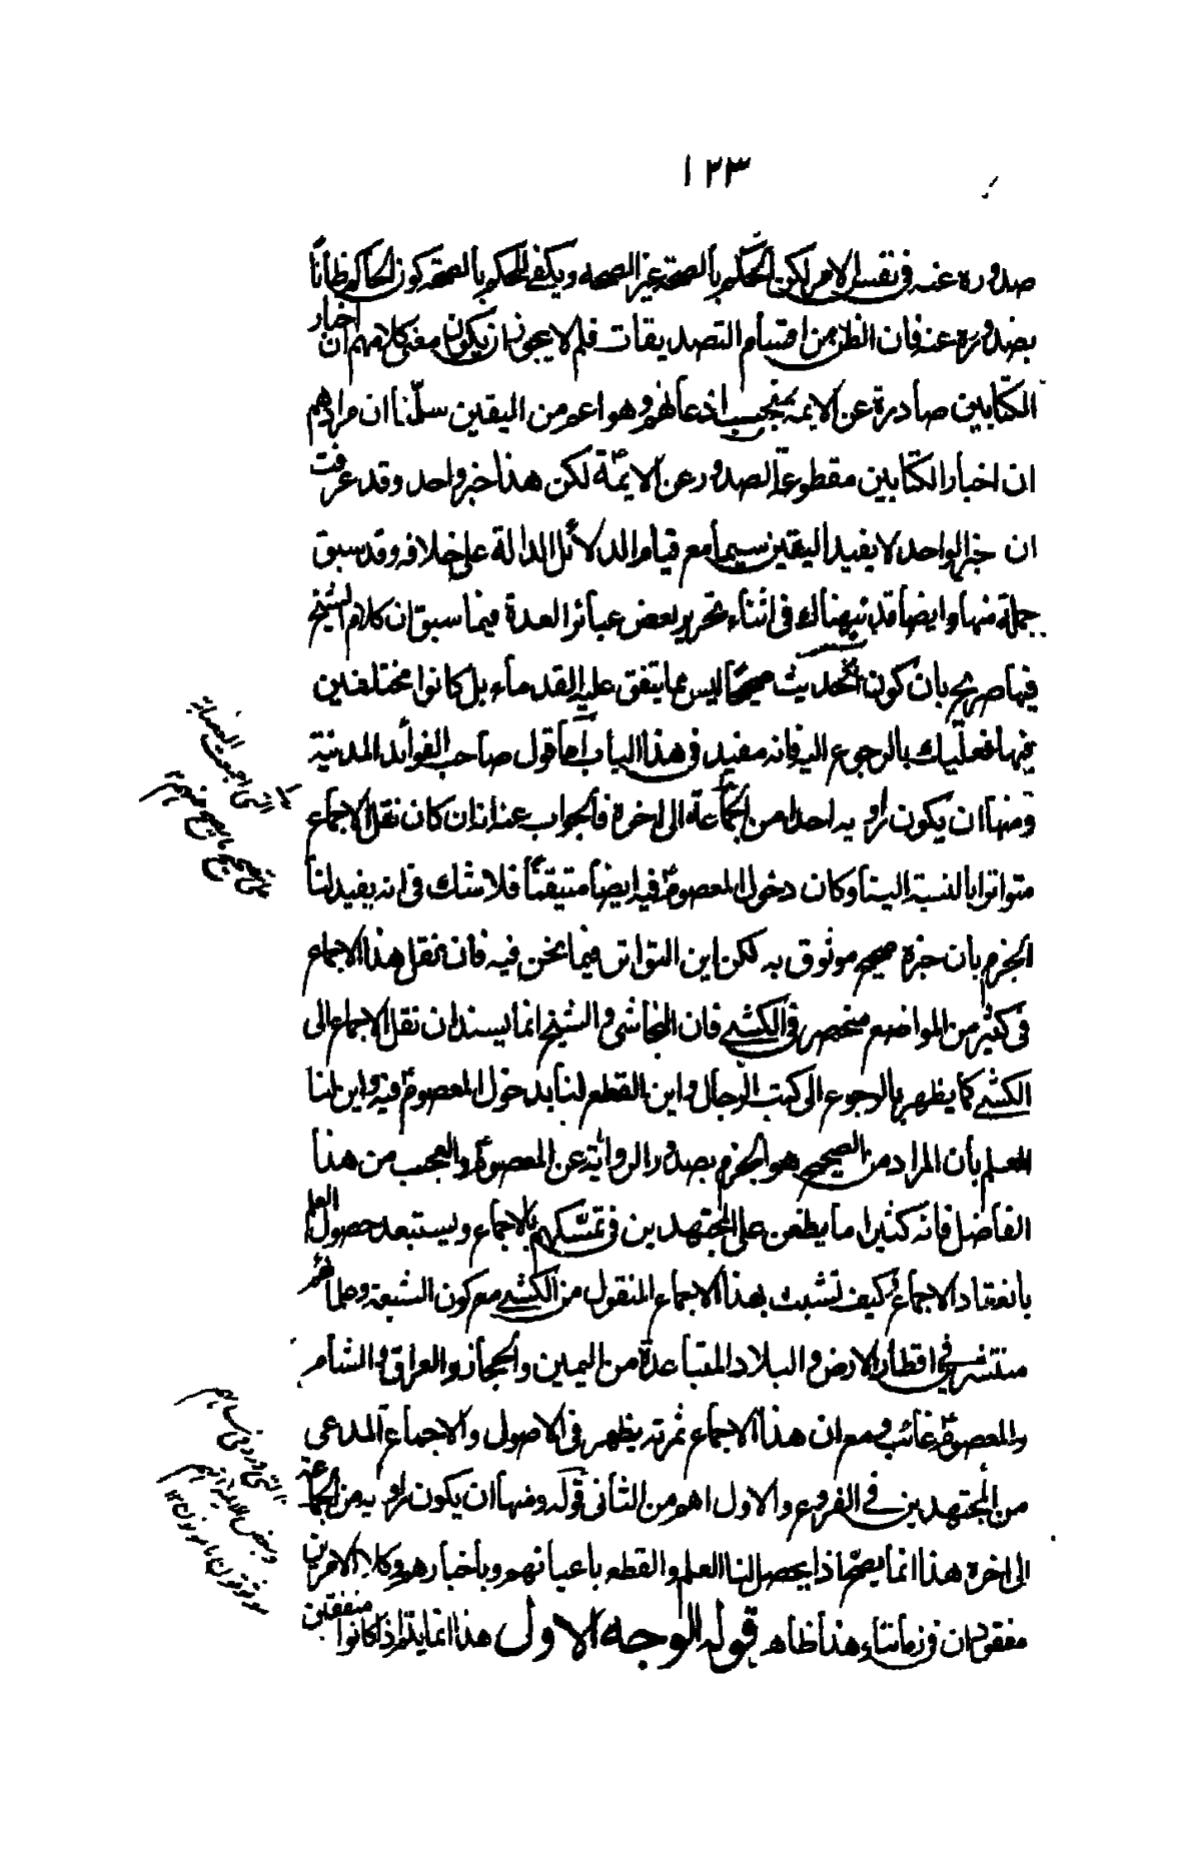 ١٢٣
صدوره عنه فى نفس الامر لكن الحكم بالصحة غير الصحه ويكفى للحكم بالصحة كون الحاكم ظانا
بصدوره عنه فان الظن من اقسام التصديقات فلم لا يجوز ان يكون معنى كلامهم ان اخبار
الكتابين صادرة عن الايمة بحسب اذعانهم وهو اعم من اليقين سلّمنا ان مرادهم
ان اخبار الكتابين مقطوعة الصدور عن الايمّة لكن هذا خبر واحد وقد عرفت
ان خبر الواحد لا يفيد اليقين سيما مع قيام الدلائل الدالة على خلافه وقد سبق
جملة منها وايضا قد نبهناك فى اثناء تحرير بعض عبائر العدة فيما سبق ان كلام الشيخ
فيها صريح بان كون الحديث صحيحا ليس مما يتفق عليه القدماء بل كانوا مختلفين
فيها فعليك بالرجوع اليه فانه مفيد فى هذا الباب قول صاحب الفوائد المدنية
ومنها ان يكون راويه احدا من الجماعة الى اخره فالجواب عنه انه ان كان نقل الاجماع
متواترا بالنسبة الينا وكان دخول المعصوم فيه ايضا متيقنا فلا شك فى انه يفيد لنا
الجزم بان خبره صحيح موثوق به لكن اين التواتر فيما نحن فيه فان نقل هذا الاجماع
فى كثير من المواضع منحصر فى الكشى فان النجاشى والشيخ انما يسندان نقل الاجماع الى
الكشى كما يظهر بالرجوع الى كتب الرجال واين القطع لنا بدخول المعصوم فيه واين لنا
العلم بان المراد من الصحيح هو الجزم بصدور الرواية عن المعصوم والعجب من هذا
الفاضل فانه كثيرا ما يطعن على المجتهدين فى تمسّكهم بالاجماع ويستبعد حصول العلم
بانعقاد الاجماع كيف تشبث بهذا الاجماع المنقول من الكشى مع كون الشيعة وعلمائهم
منتشر فى اقطار الارض والبلاد المتباعدة من اليمين والحجاز والعراق والشام
والمعصوم غائب ومع ان هذا الاجماع ثمرته يظهر فى الاصول والاجماع المدعى
من المجتهدين فى الفروع والاول اهم من الثانى قوله ومنها ان يكون راويه من الجماعة
الى اخره هذا انما يصح اذا يحصل لنا العلم والقطع باعيانهم وباخبارهم وكلا الامرين
مفقودان فى زماننا هذا ظاهر قوله الوجه الاول هذا انما يتم اذا كانوا متفقين
التى اجمعت العصابة
على تصحيح ما يصح عنهم